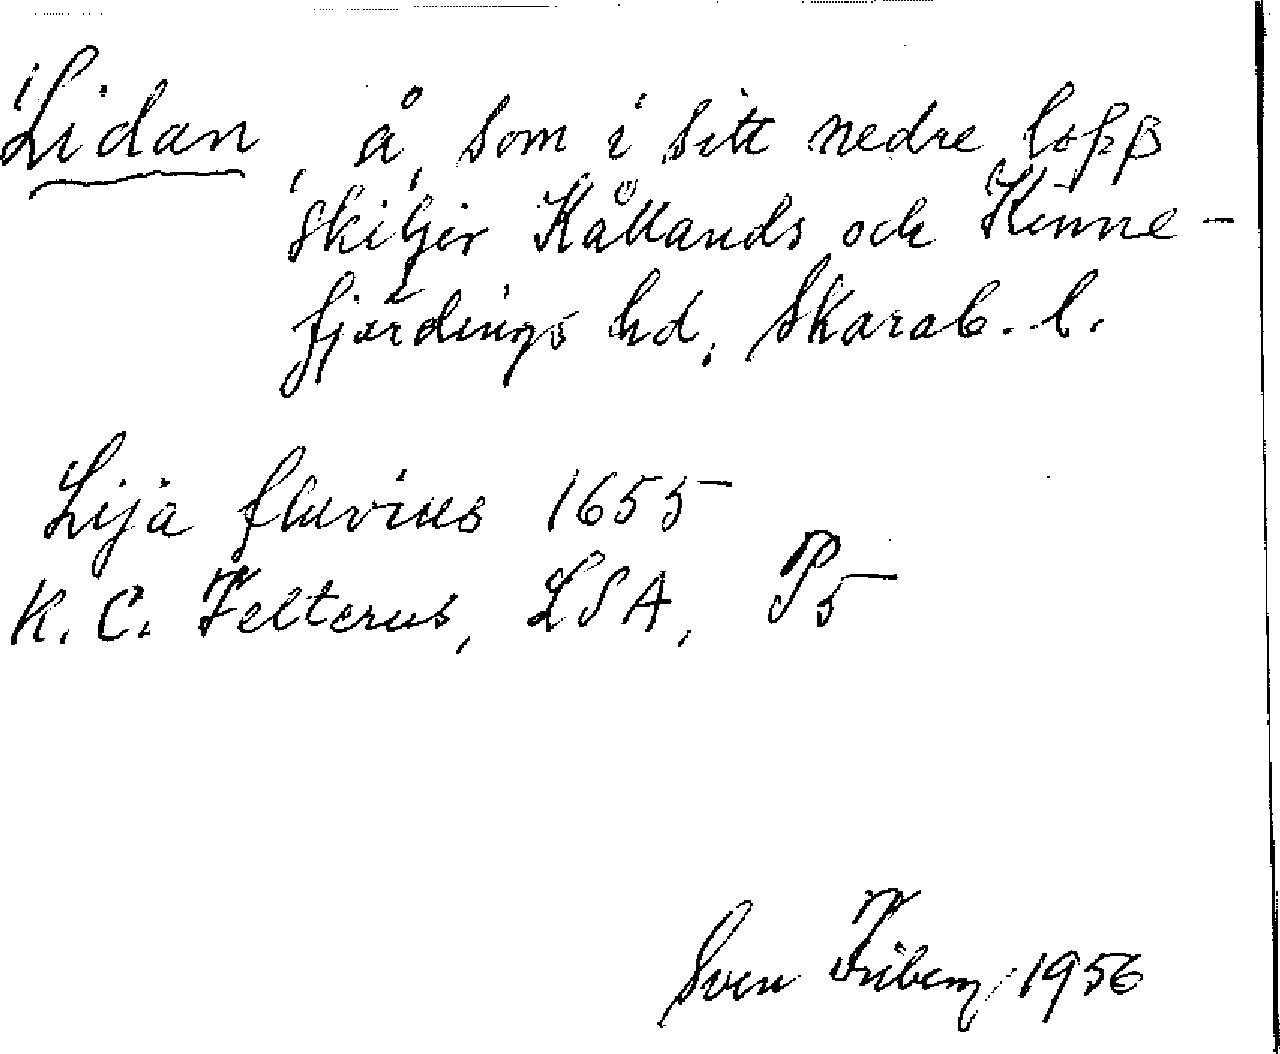 Lidan, å, som i sitt nedre lopp
skiljer Kållands och Kinne-
fjärdings hd, Skarab. l.
Lija fluvius 1655
K. C. Felterus, LSA, P5
Sven Friberg, 1956